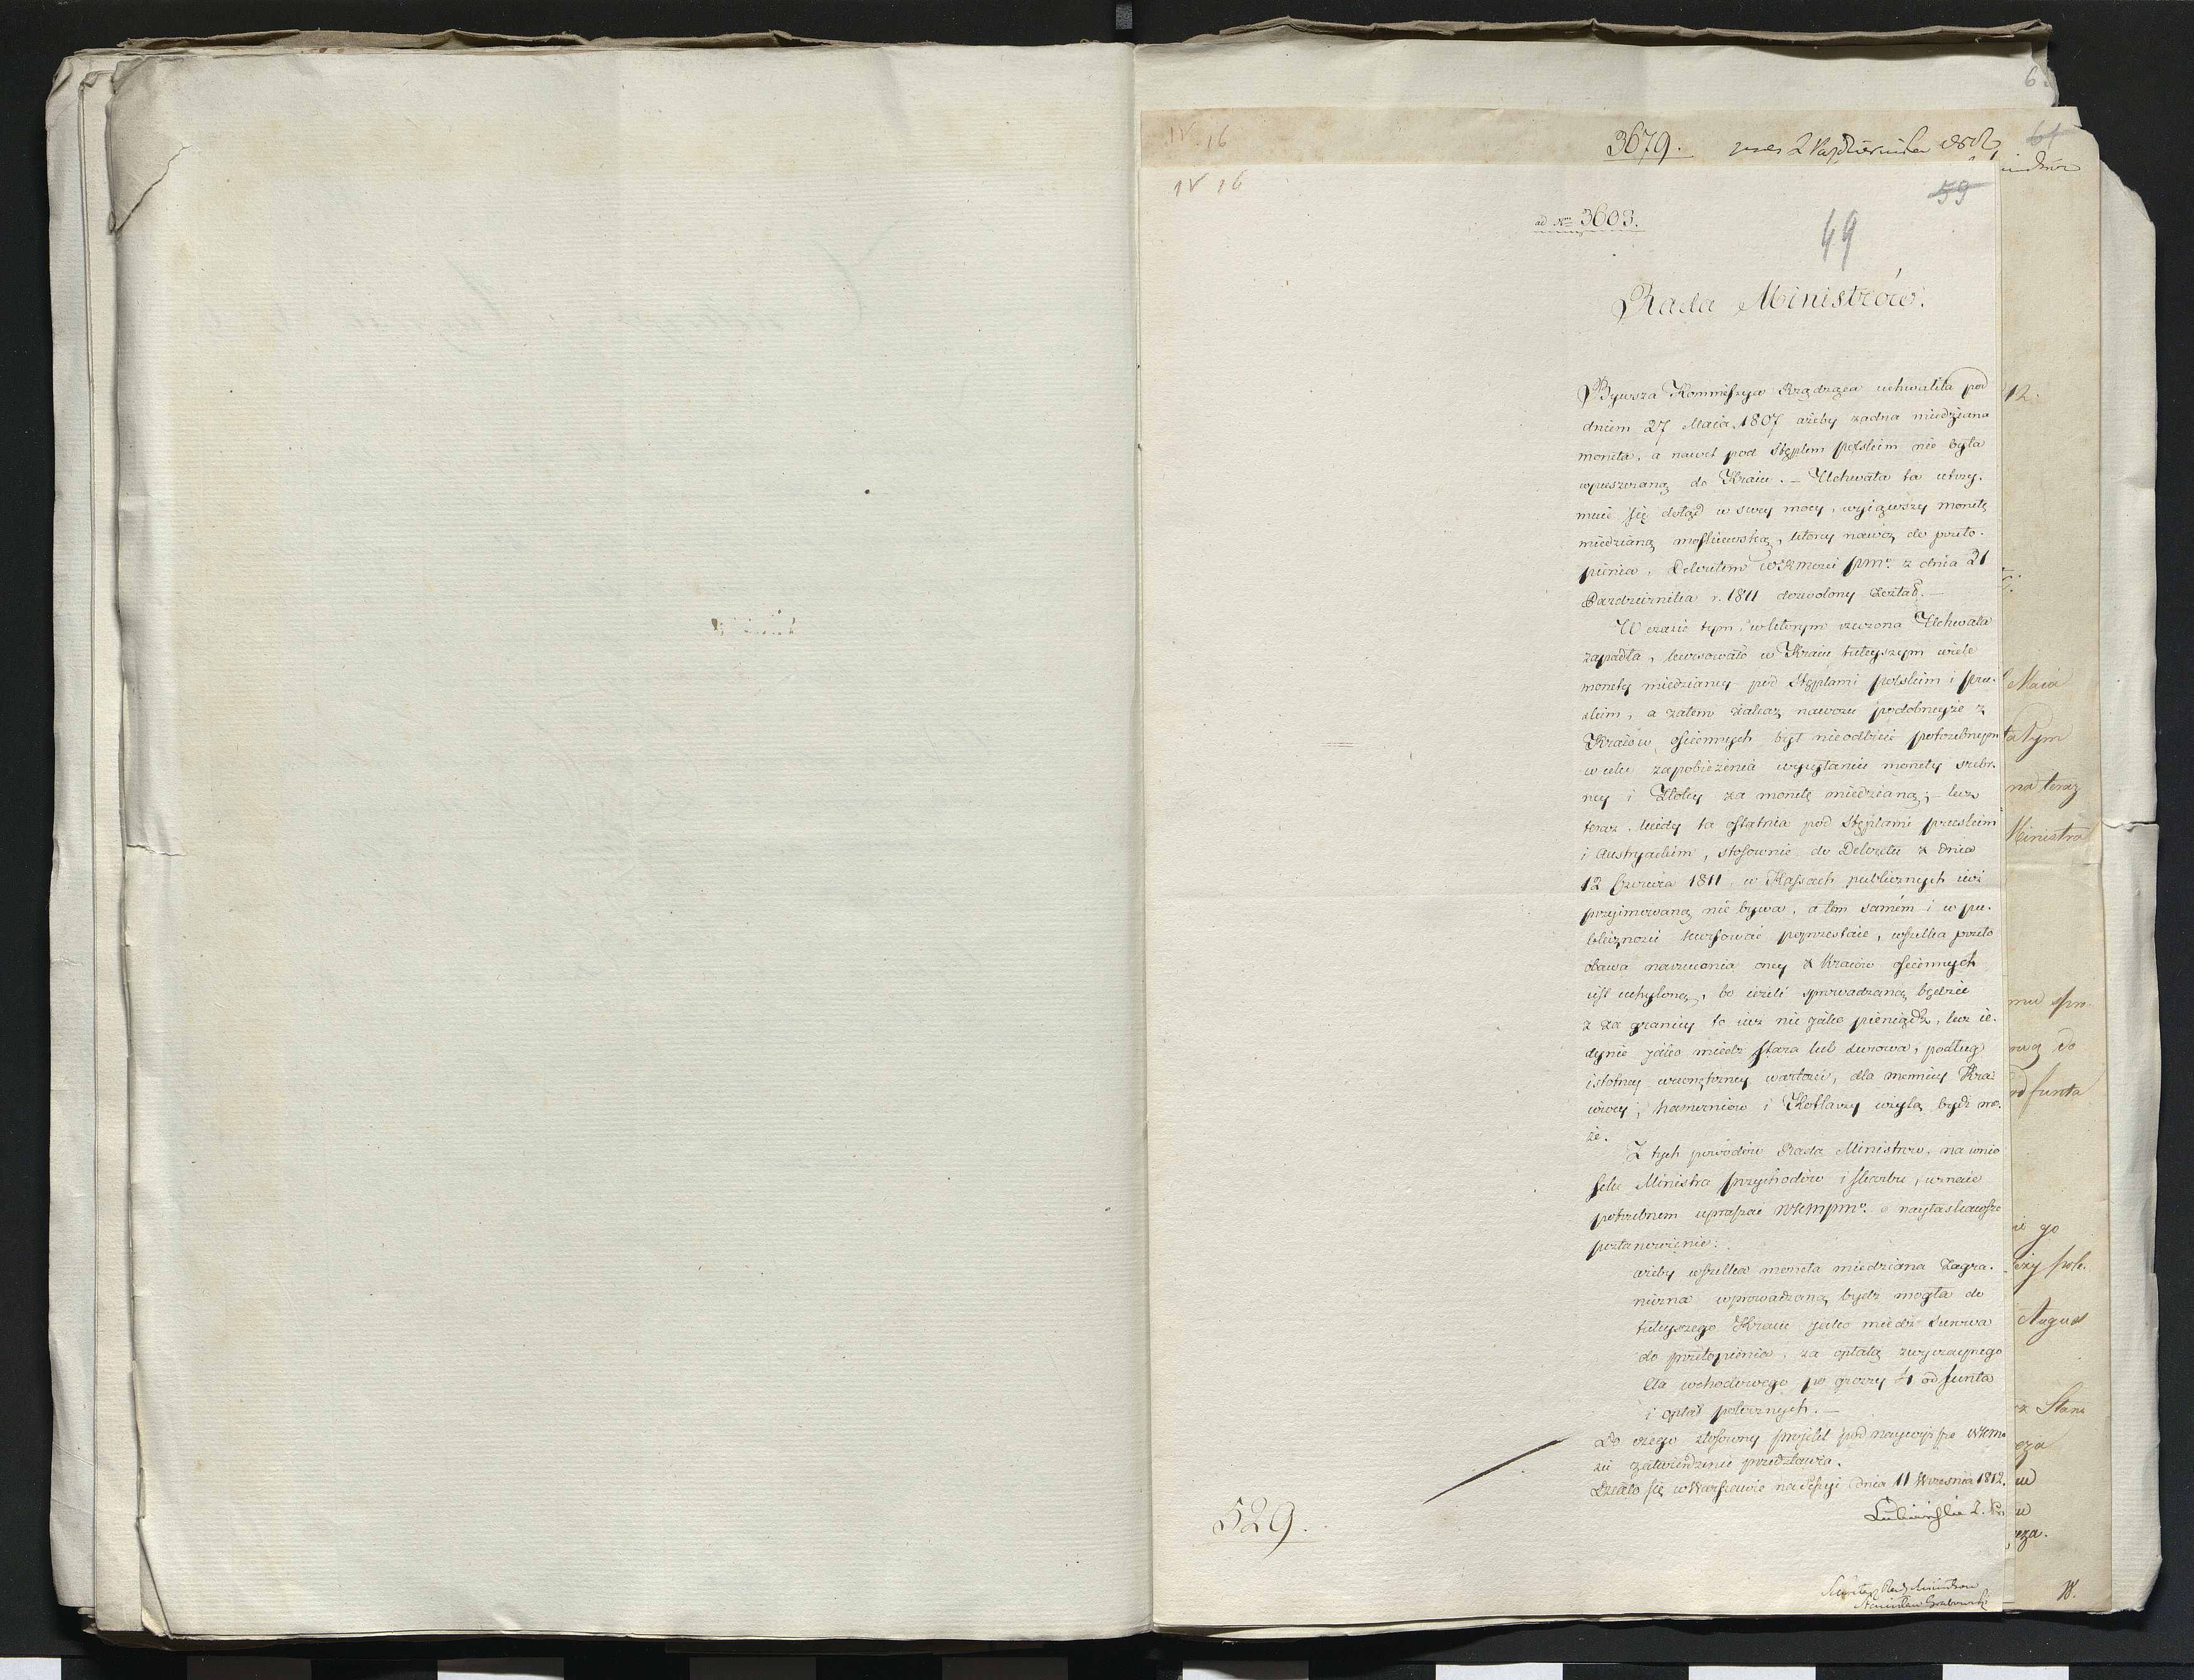 IV 16
3679.
2 Października
61
IV 16
59
ad Nro 3603.
49
Rada Ministrów.
Bywsza Kommissya Rządząca uchwaliła pod
dniem 27 Maia 1807 ażeby żadna miedziana
moneta, a nawet pod Stęplem polskim nie była
wpuszczaną do Kraiu. – Uchwała ta utrzy-
muie się dotąd w swey mocy, wyiąwszy monetę
miedzianą moskiewską, którey nawóz do przeto-
pienia, Dekretem WKMości pmo z dnia 21
Pazdziernika r. 1811 dozwolony został. –
W czasie tym, w którym rzeczona Uchwała
zapadła, kursowało w Kraiu tuteyszym wiele
monety miedzianey pod Stęplami polskim i pru-
skim, a zatem zakaz nawozu podobneyże z
Kraiów ościennych był nieodbicie potrzebnym
w celu zapobieżenia wywołaniu monety srebr-
ney i Złotey za monetę miedzianą; – lecz
teraz, kiedy ta ostatnia pod Stęplami pruskim
i Austryackim, stosownie do Dekretu z dnia
12 Czerwca 1811 w Kassach publicznych iuż
przyimowaną nie bywa, a tem samém i w pu-
bliczności kursować poprzestaie, wszelka przeto
obawa narzucenia oney z Kraiów ościennych
iest uchyloną, bo ieżeli sprowadzaną będzie
z za granicy to iuż nie jako pieniądz, lecz ie-
dynie jako miedź stara lub surowa, podług
istotney wewnętrzney wartości, dla mennicy Kra-
iowey, hamerniów i Kotlarzy użytą bydź mo-
że.
Z tych powodów Rada Ministrow, na wnio
sek Ministra przychodów i skarbu, uznaie
potrzebnem upraszać WKMpmo o nayłaskawsze
postanowienie:
ażeby wszelka moneta miedziana Zagra-
niczna wprowadzaną bydź mogła do
tuteyszego Kraiu jako miedź surowa
do przetopienia, za opłatą zwyczaynego
Cła wchodowego po groszy 4 od funta
i opłat pobocznych. –
Do czego stosowny projekt pod naywyższe WKMo
ści zatwierdzenie przedstawia.
Działo się w Warszawie na Sessyi dnia 11 Września 1812.
Łubieński
Sekretarz Rady Ministrow
Stanisław Grabowski
529.
12.
Maia
tym
na teraz
Ministra
do
od funta
go
August
Stani